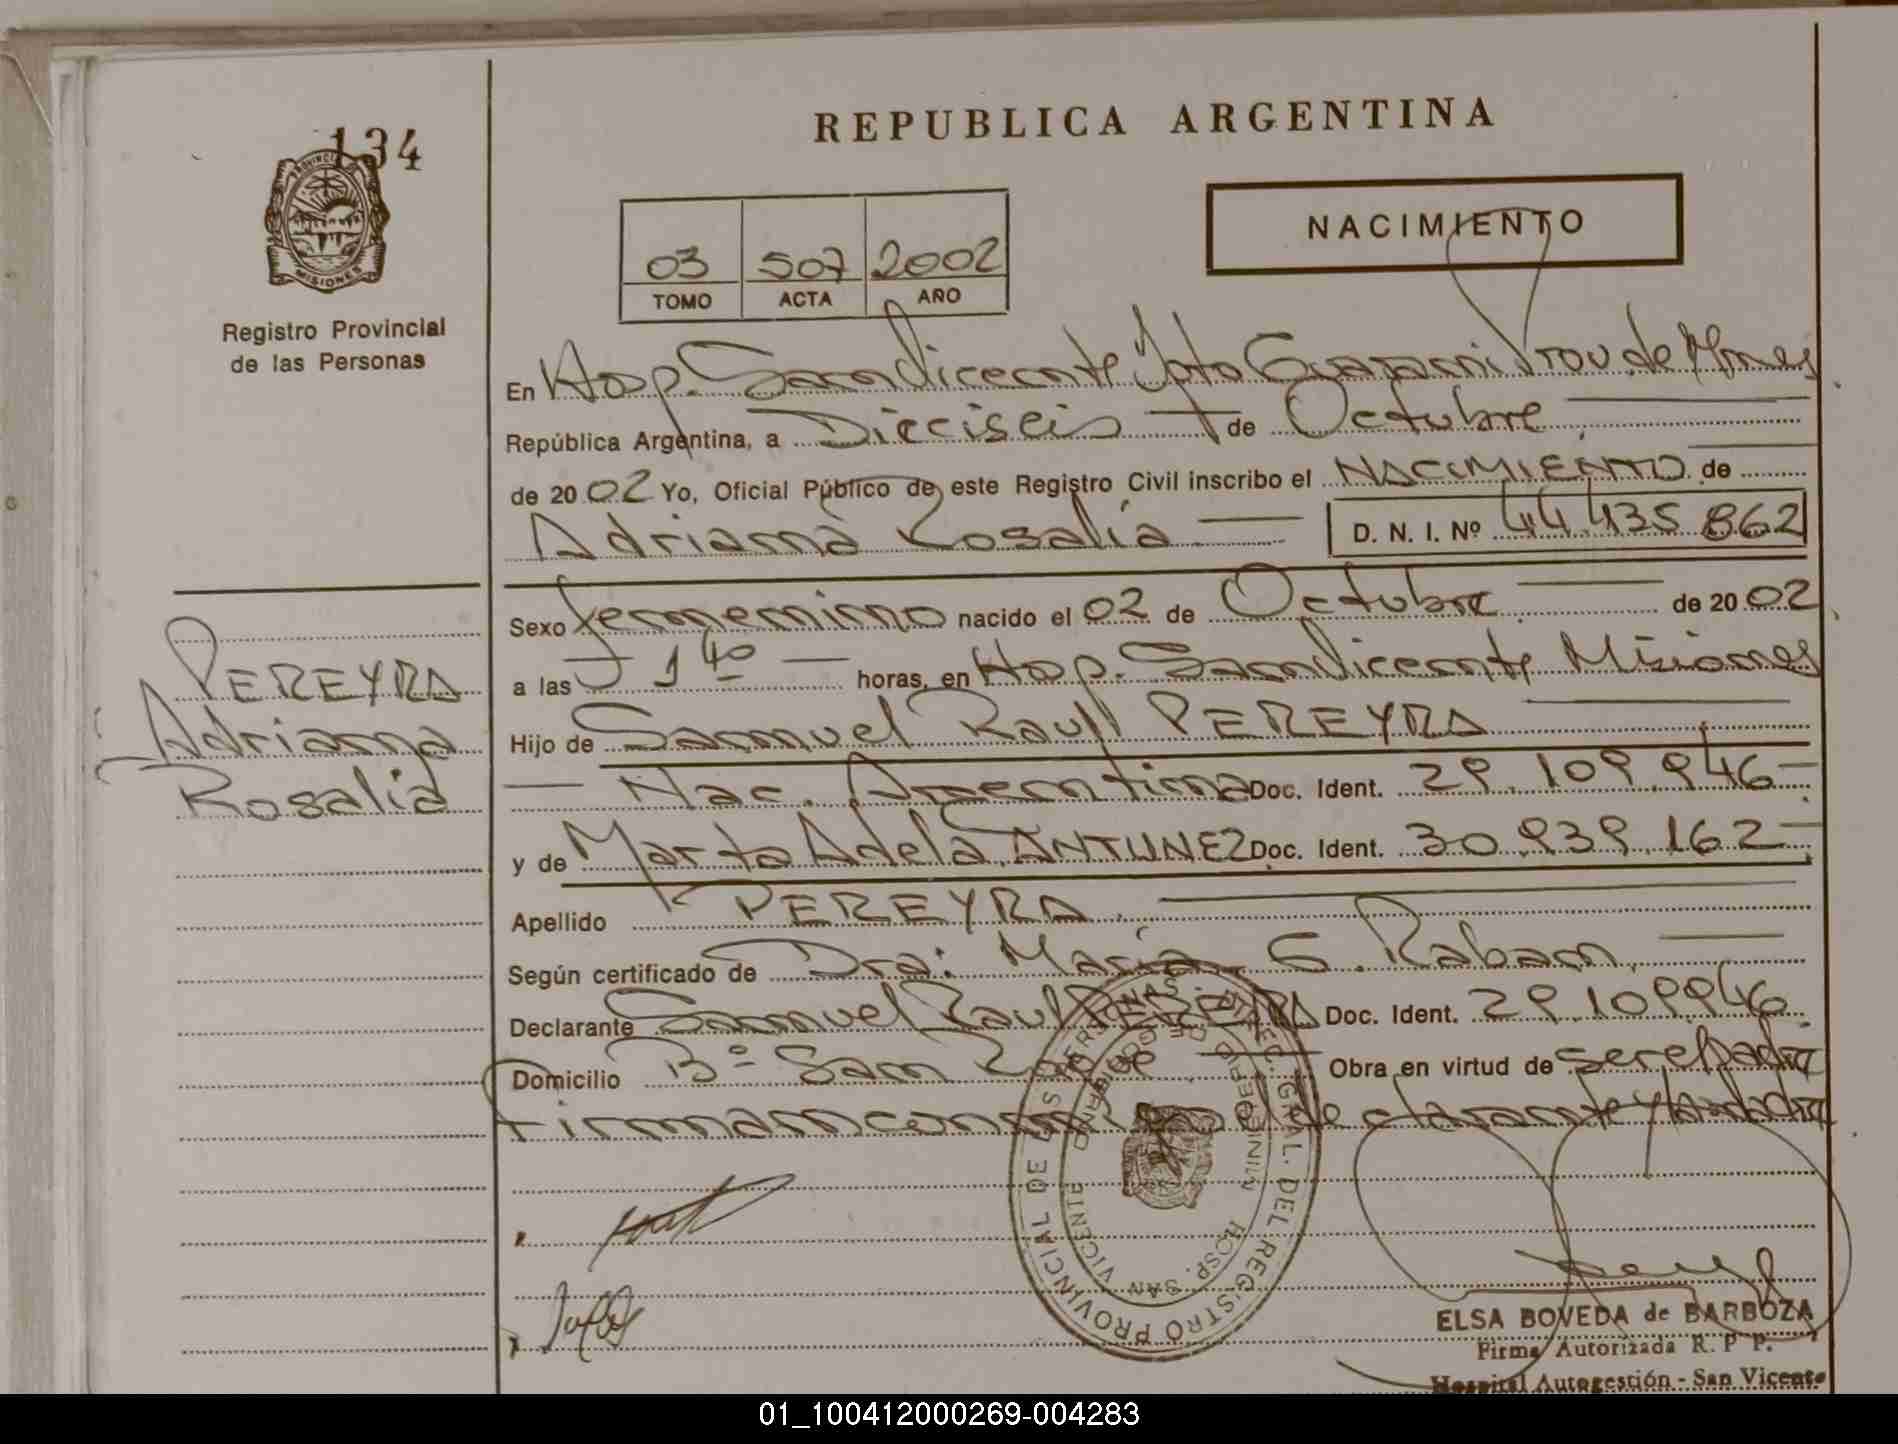 134
PROVINCIA DE
MISIONES
Registro Provincial
de las Personas
PEREYRA
Adriana
Rosalia
REPUBLICA ARGENTINA
NACIMIENTO
03 507 2002
TOMO ACTA AÑO
En Hosp. San Vicente Dpto Guarani Prov. de Mnes
República Argentina, a Dieciseis de Octubre
de 2002 Yo, Oficial Público de este Registro Civil inscribo el NACIMIENTO de
Adriana Rosalia D. N. I. Nº 44.435.862
Sexo femenino nacido el 02 de Octubre de 2002
a las 1 40 horas, en Hosp. San Vicente Misiones
Hijo de Samuel Raul PEREYRA
Nac. Argentina Doc. Ident. 29.109.946
y de Marta Adela ANTUNEZ Doc. Ident. 30.939.162
Apellido PEREYRA
Según certificado de Dra: Maria G. Raban
Declarante Samuel Raul PEREYRA Doc. Ident. 29.109.946
Domicilio Bº San Roque Obra en virtud de ser el Padre
Firman conmigo el declarante y la madre
REGISTRO PROVINCIAL DE LAS PERSONAS
DIREC. GRAL. DEL
MINISTERIO DE GOBIERNO
HOSP. SAN VICENTE
ELSA BOVEDA de BARBOZA
Firma Autorizada R. P. P.
Hospital Autogestión - San Vicente
01_100412000269-004283